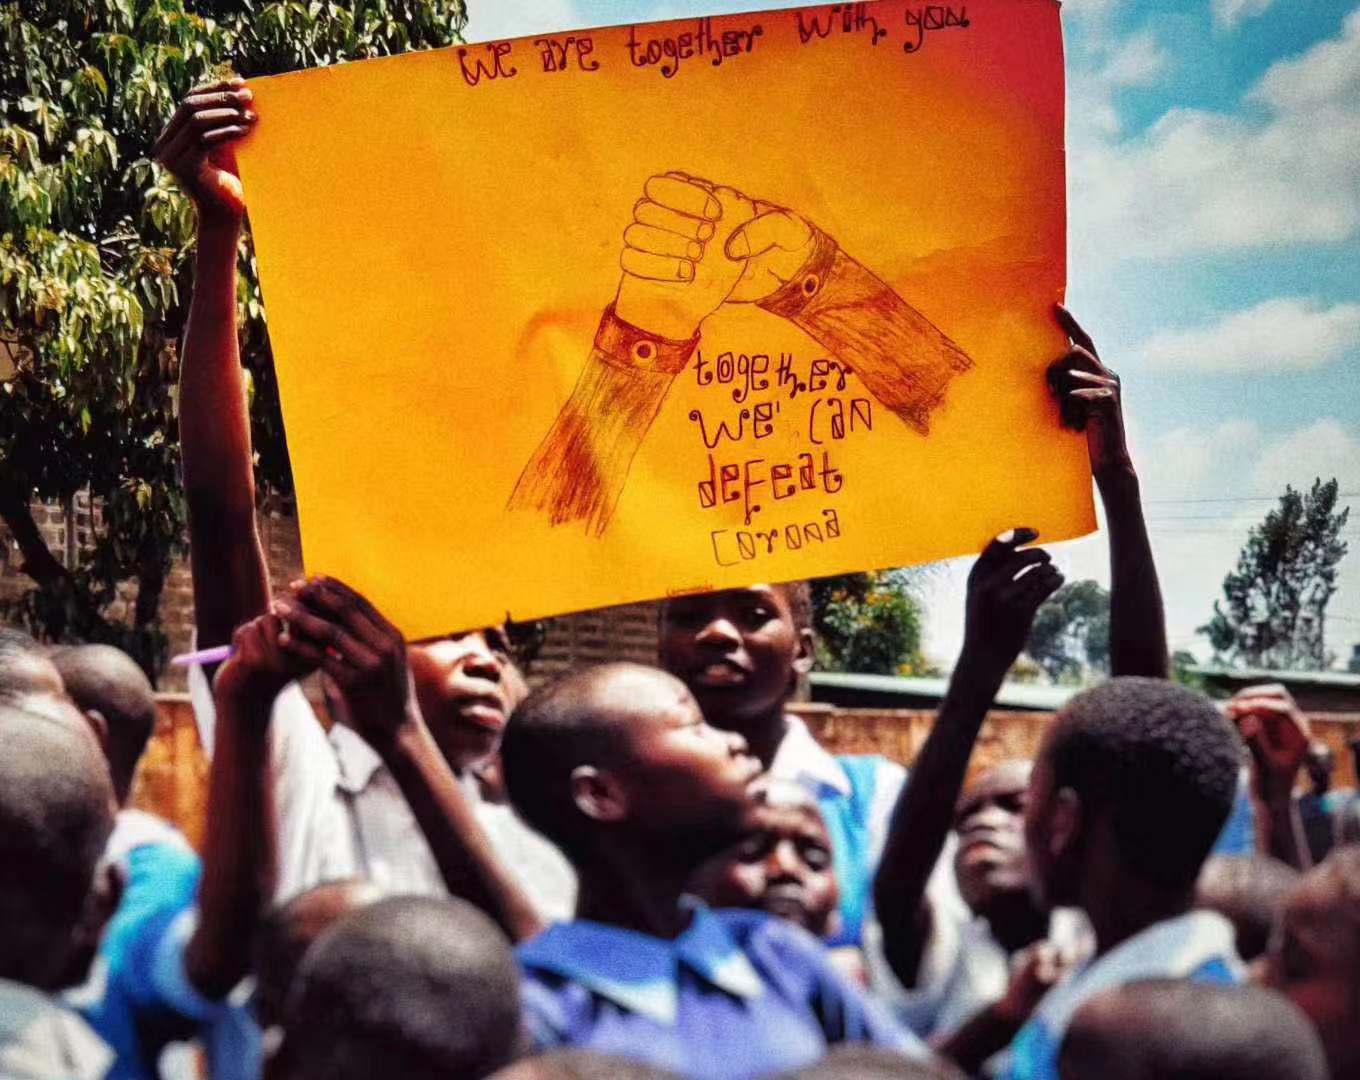 we are together with you
together
we' can
defeat
corona